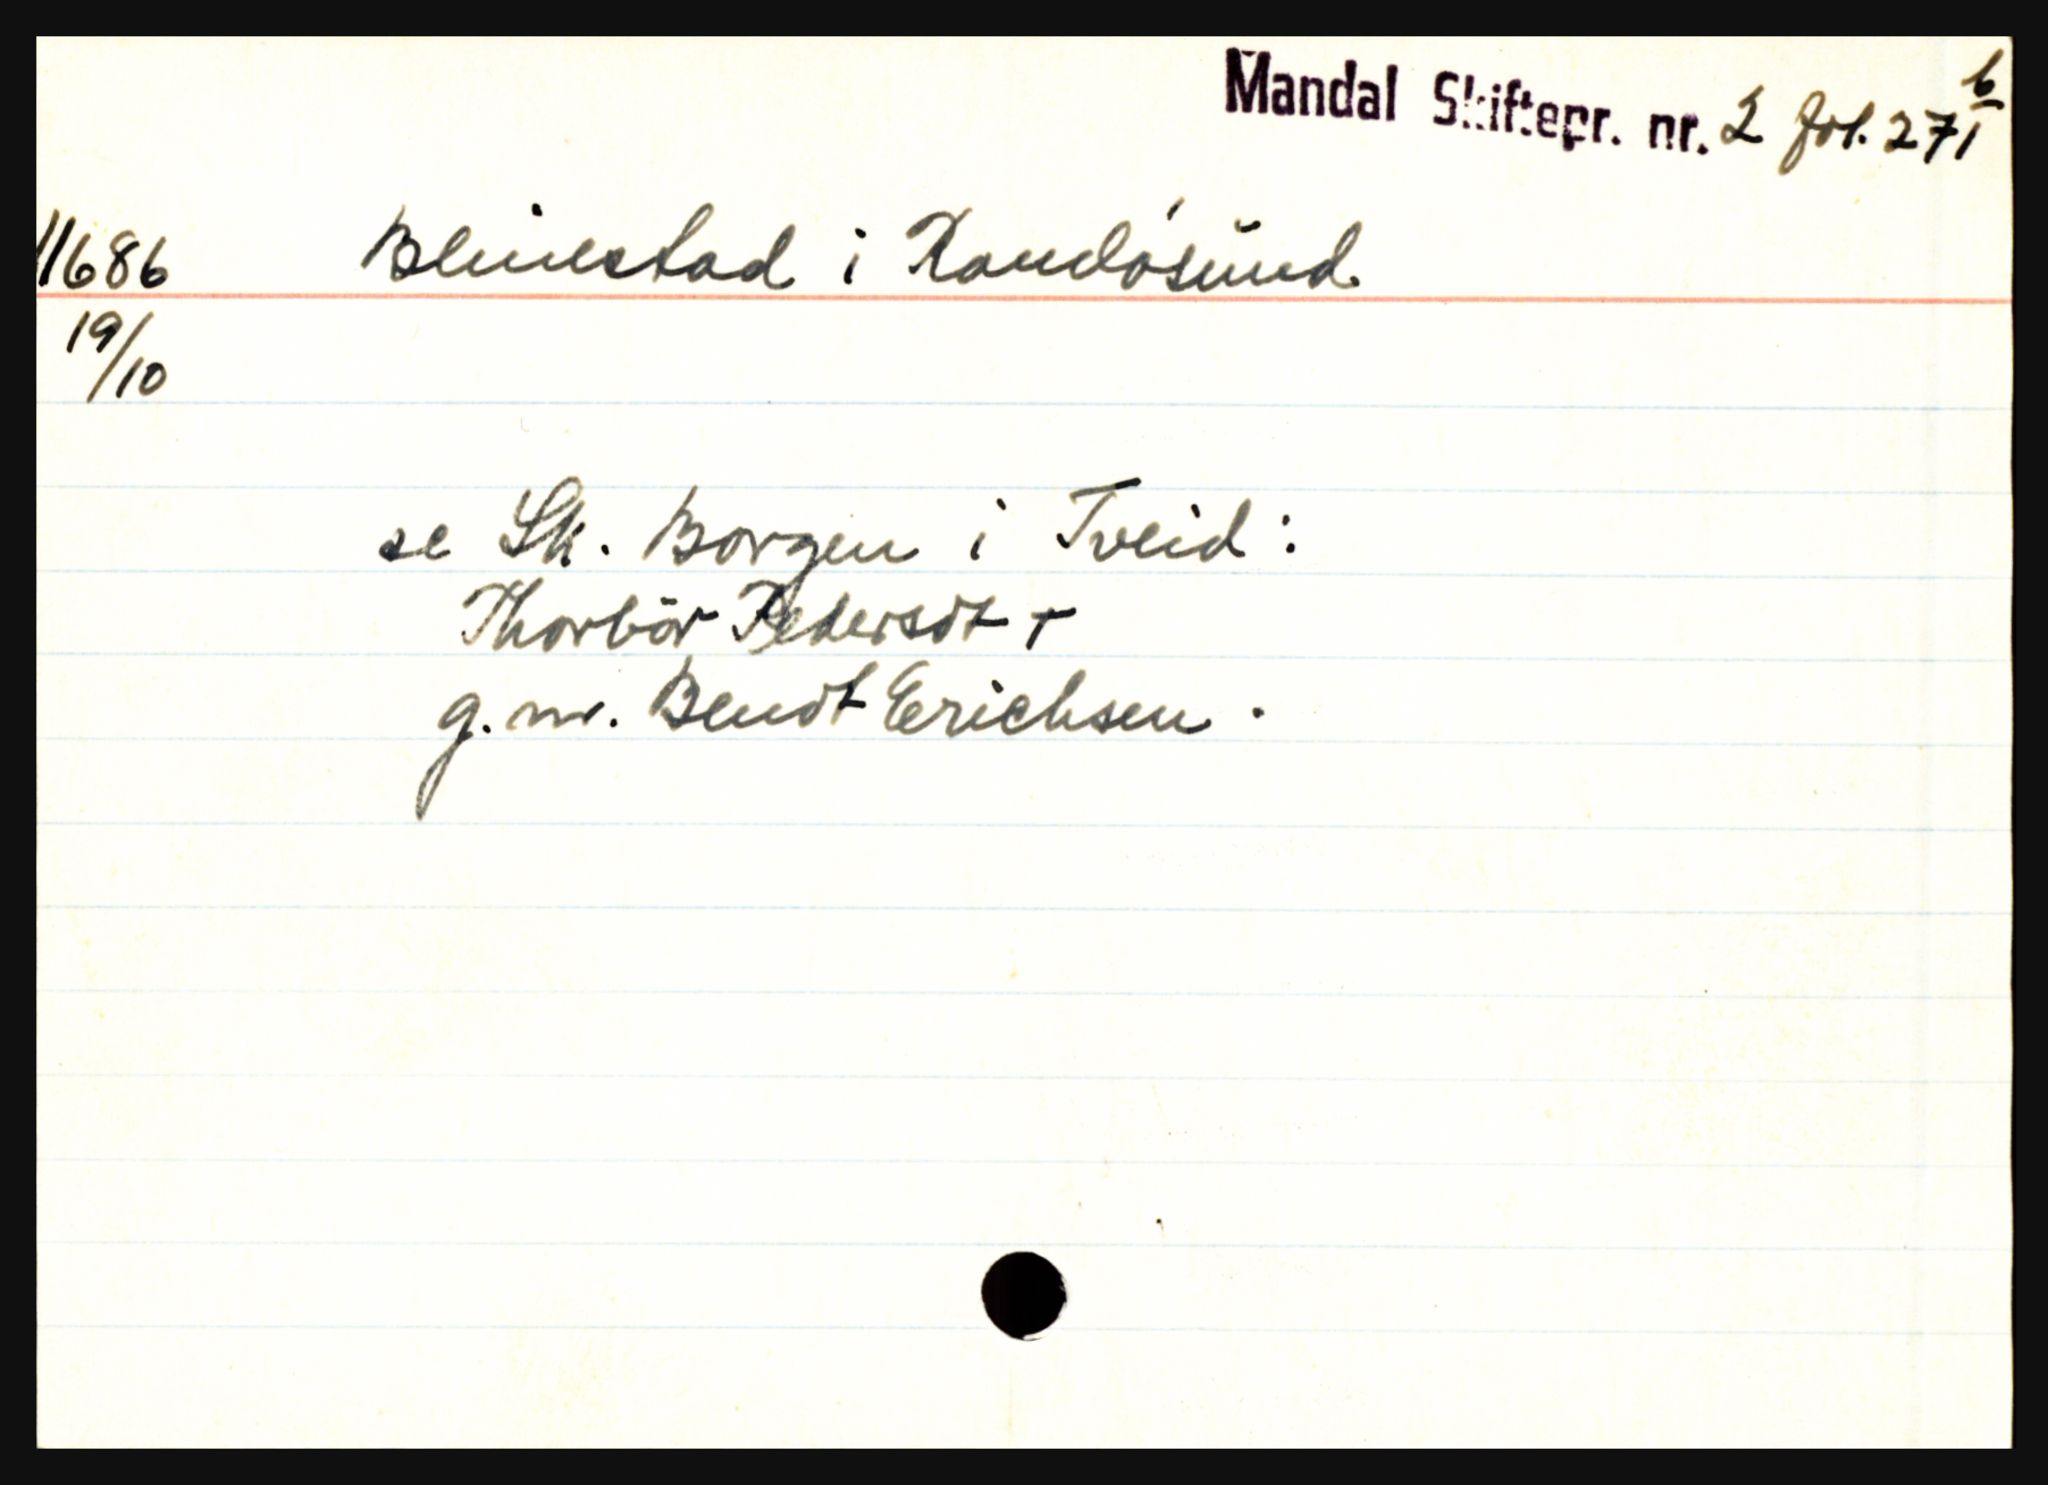 Mandal Skiftepr. nr. 2 fol. 271 b/
1686 Blienestad i Randøsund
19/10
se Sk. Borgen i Tveid:
Thorbör Pedersdt +
g. m. Bendt Erichsen.